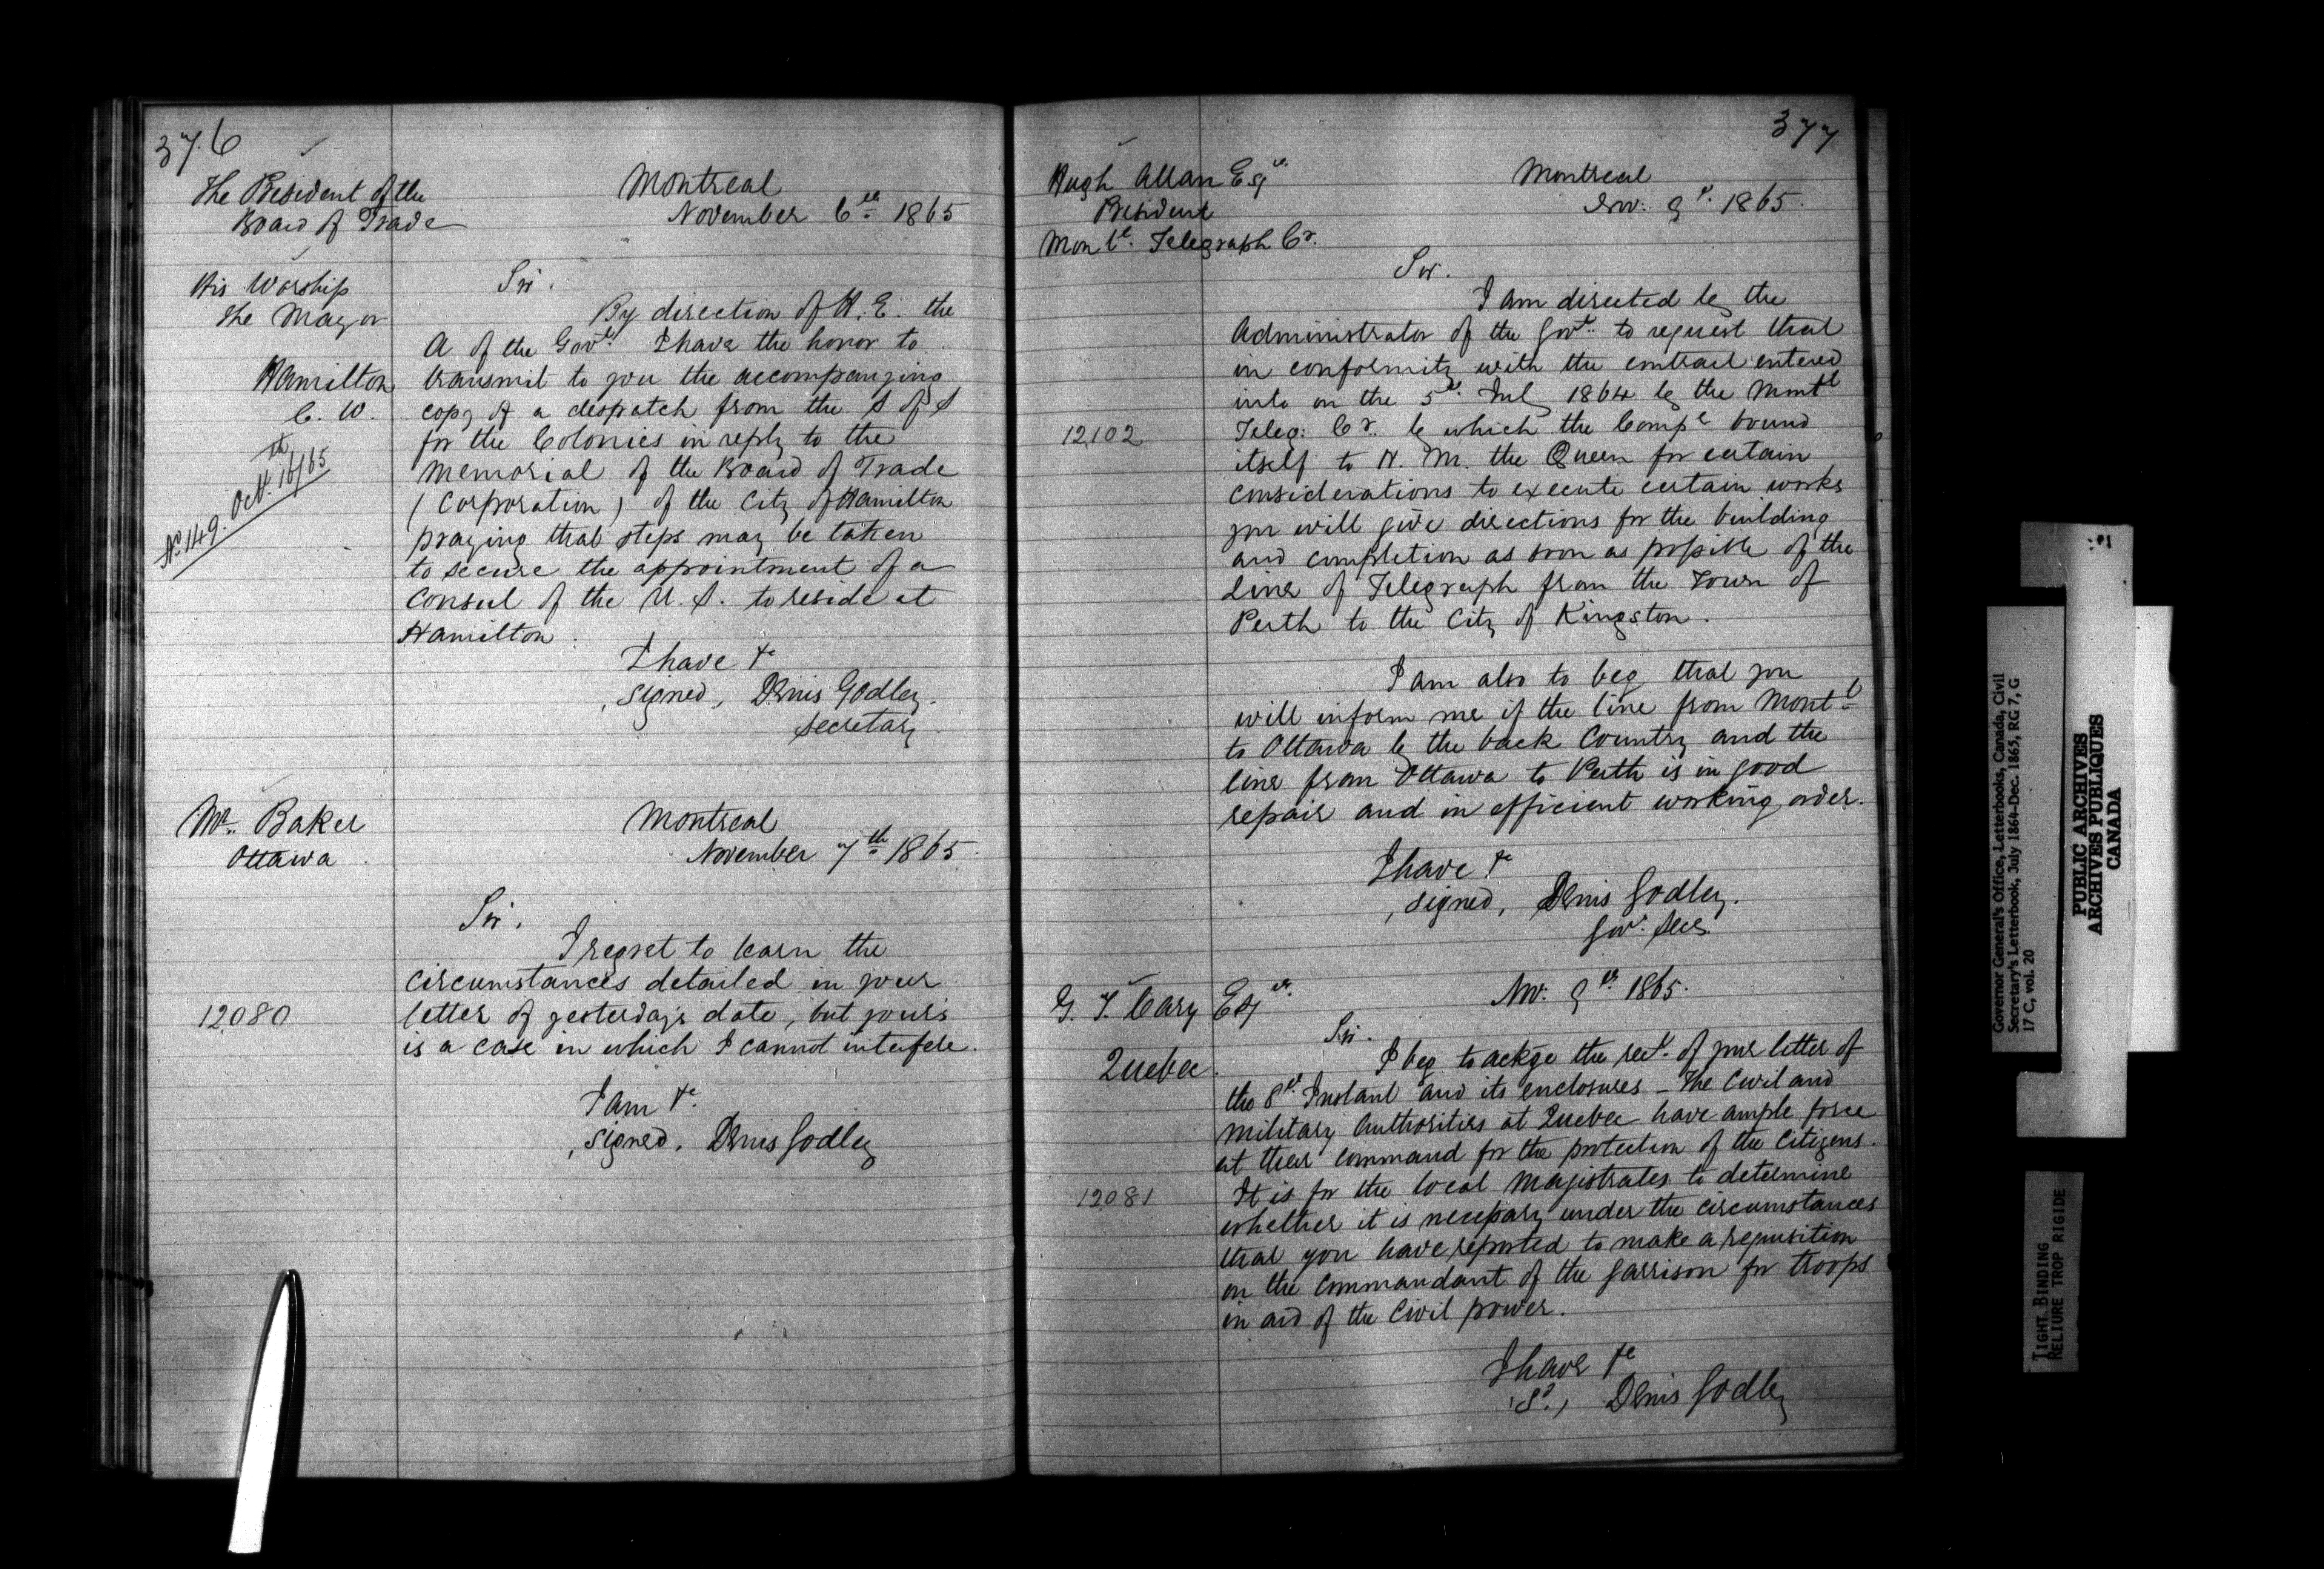 376
The President of the
Board of Trade
His Worship
The Mayor
Hamilton
C. W.
No 149. Oct. 16th/65
Montreal
November 6th 1865
Sir.
By direction of H. E. the
A of the Govt. I have the honor to
transmit to you the accompanying
copy of a despatch from the S of S
for the Colonies in reply to the
Memorial of the Board of Trade
(Corporation) of the City of Hamilton
praying that steps may be taken
to secure the appointment of a
Consul of the U. S. to reside at
Hamilton.
I have &c
signed, Denis Godley.
Secretary.
Mr. Baker
Ottawa
Montreal
November 7th 1865.
Sir.
I regret to learn the
circumstances detailed in your
12080
letter of yesterday's date, but yours
is a case in which I cannot interfere.
I am &c.
signed. Denis Godley
377
Hugh Allan Esqre.
President
Montl. Telegraph Co.
Montreal
Nov: 9th. 1865.
Sir.
I am directed by the
Administrator of the Govt. to request that
in conformity with the contract entered
into on the 5th. July 1864 by the Montl
12,102
Teleg: Co. by which the Compy bound
itself to H. M. the Queen for certain
considerations to execute certain works
you will give directions for the building
and completion as soon as possible of the
Line of Telegraph from the Town of
Perth to the City of Kingston.
I am also to beg that you
will inform me if the line from Montl
to Ottawa by the back Country and the
line from Ottawa to Perth is in good
repair and in efficient working order.
I have &c
signed, Denis Godley.
Govr. Secy.
G. T. Cary Esqre.
Quebec.
Nov. 9th. 1865.
Sir.
I beg to ackge the rect. of your letter of
the 8th. Instant and its enclosures – The Civil and
Military Authorities at Quebec have ample force
at their command for the protection of the Citizens.
12081
It is for the local Magistrates to determine
whether it is necessary under the circumstances
that you have reported to make a requisition
on the Commandant of the Garrison for troops
in aid of the Civil power.
I have &c
(Sd.) Denis Godley
Governor General's Office, Letterbooks, Canada, Civil
Secretary's Letterbook, July 1864-Dec. 1865, RG 7, G
17 C, vol. 20
PUBLIC ARCHIVES
ARCHIVES PUBLIQUES
CANADA
TIGHT BINDING
RELIURE TROP RIGIDE